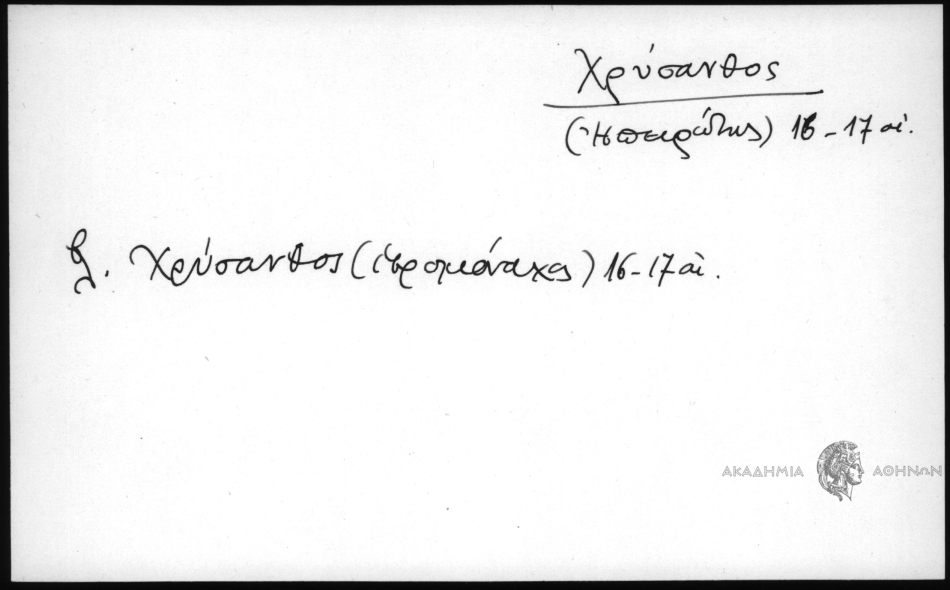 Χρύσανθος
(Ἠπειρώτης) 16-17 αἰ.
βλ. Χρύσανθος (ἱερομόναχος) 16-17 αἰ.
ΑΚΑΔΗΜΙΑ ΑΘΗΝΩΝ